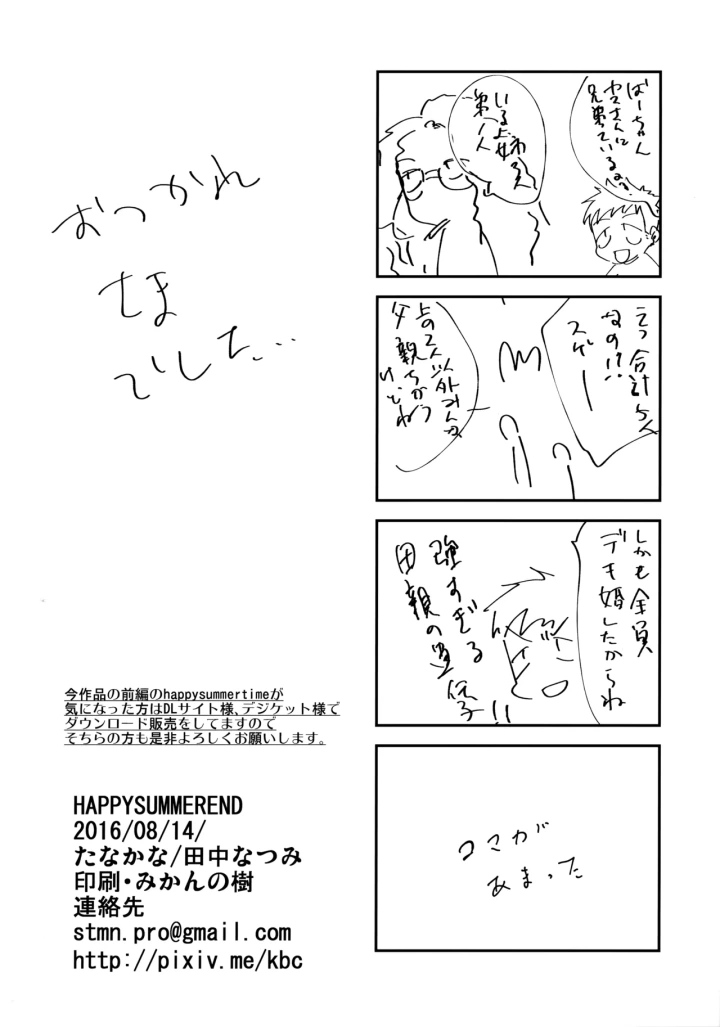 ばーちゃん
母さんに
兄弟っているの?
いるよ姉2人
弟1人
えっ合計5人
なの!?
スゲー
上の2人以外みんな
父親ちがう
けどね
しかも全員
デキ婚したからね
強すぎる
母親の遺伝子!!
コマが
あまった
おつかれ
さま
でした…
今作品の前編のhappysummertimeが
気になった方はDLサイト様、デジケット様で
ダウンロード販売をしてますので
そちらの方も是非よろしくお願いします。
HAPPYSUMMEREND
2016/08/14/
たなかな/田中なつみ
印刷・みかんの樹
連絡先
stmn.pro@gmail.com
http://pixiv.me/kbc